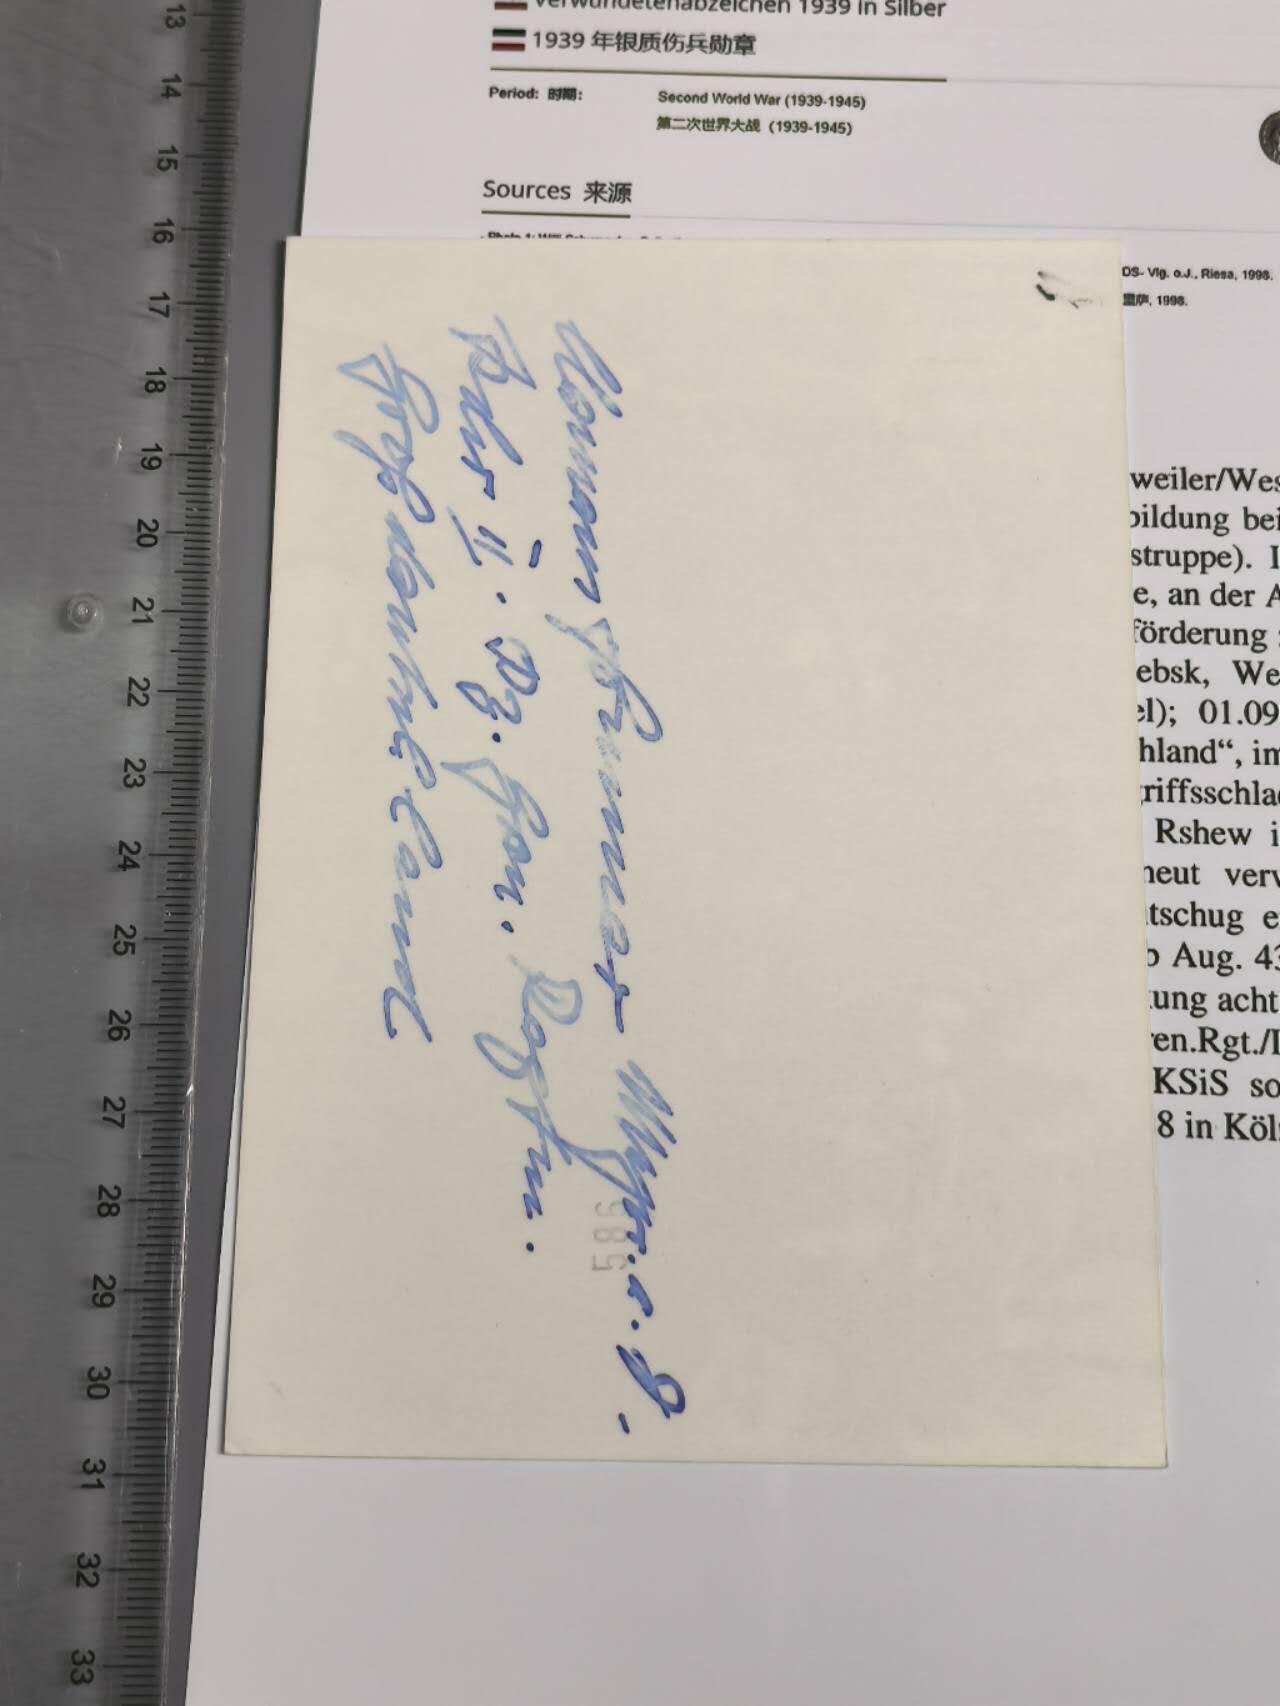 Verwundetenabzeichen 1939 in Silber
1939 年银质伤兵勋章
Period: 时期: Second World War (1939-1945)
第二次世界大战 (1939-1945)
Sources 来源
DS- Vlg. o.J., Riesa, 1998.
里萨, 1998.
Clemens Sommer Major a. D.
II. Pz. Gren. Regtm.
Großdeutschland
586
weiler/Wes
bildung bei
struppe). I
e, an der A
förderung
ebsk, We
el); 01.09
hland“, im
griffsschla
Rshew i
neut verv
tschug e
Aug. 43
tung acht
ren.Rgt./I
KSiS so
8 in Köl
13
14
15
16
17
18
19
20
21
22
23
24
25
26
27
28
29
30
31
32
33